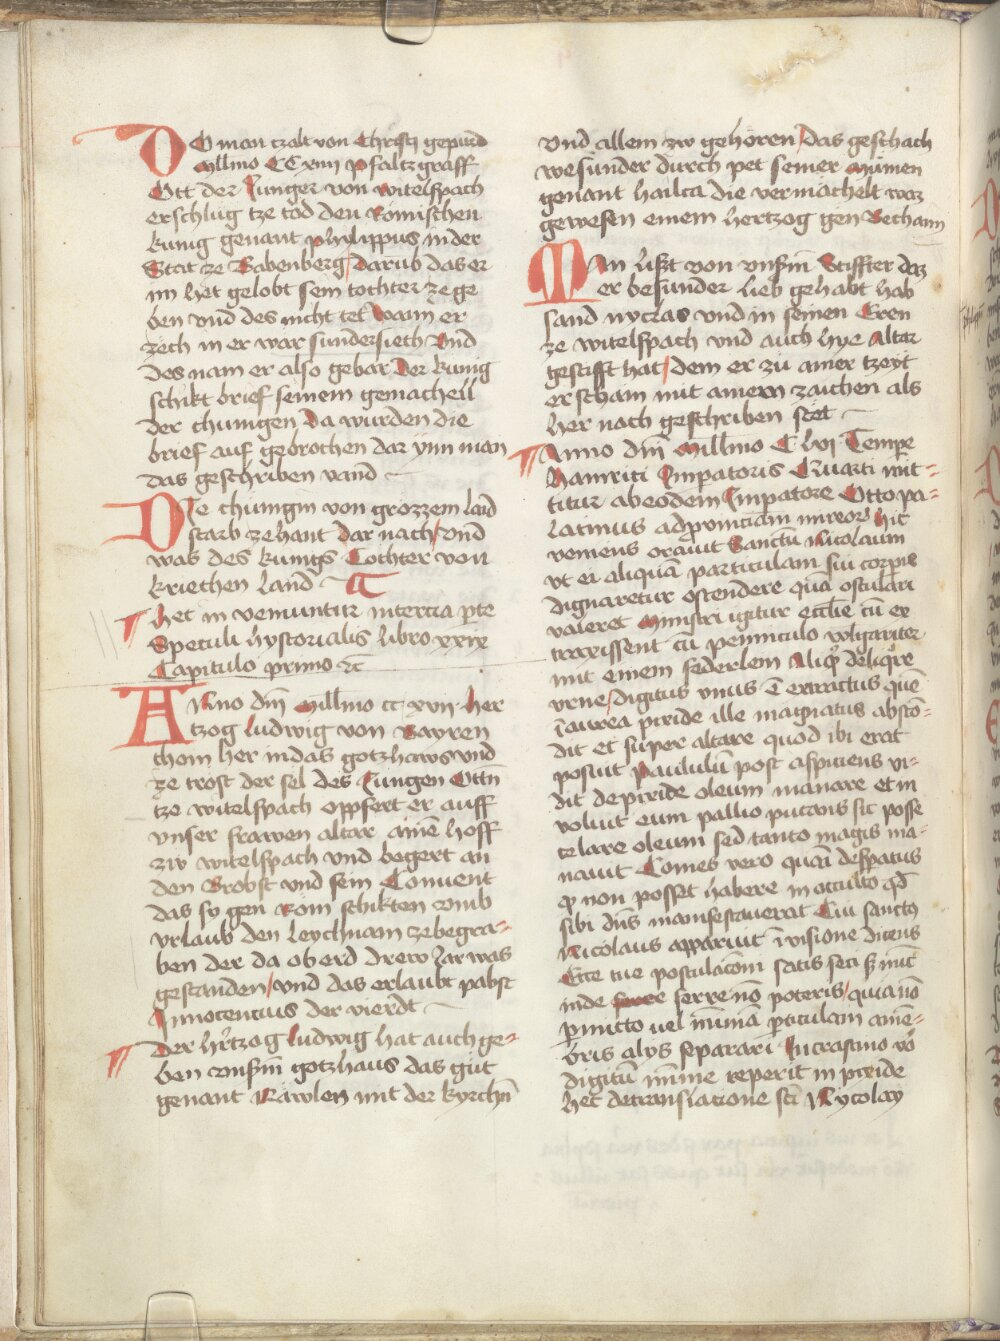 DO man tzalt von Christi gepurd
Millmo CC viij pfaltzgraff
Ott der Junger von witelspach
erschlug tze tod den Römischen
kunig genant philippus in der
Stat ze Babenberg / darūb das er
im het gelobt sein tochter ze ge
ben vnd des nicht tet wann er
zech in er war sundersiech Vnd
des nam er also gebar Der kunig
schikt brief seinem gemachell
der chunigen Da wurden die
brief auf geprochen dar ynn man
das geschriben vand
DJe chunigin von grozzem laid
starb zehant dar nach / vnd
was des kunigs Tochter von
kriechen land
het in veniuntur in tercia pte
Speculi hystorialis libro xxix
Capitulo primo ꝛc
ANno dm̄ Millmo cc xvij her
tzog Ludwig von Bayren
chom her in das gotzhaws vnd
ze trost der sel des Jungen Ottn̄
tze witelspach oppfert er auff
vnser frawen altar ainē hoff
zw witelspach vnd begert an
den Brobst vnd sein Conuent
das sy gen Rom schikten vmb
vrlaub den leychnam ze begra-
ben der da ob erd drew Jar was
gestanden / vnd das erlaubt pabst
Innocencius der vierdt
Der hr̄tzog Ludwig hat auch ge-
ben vnsm̄ gotzhaus das gut
genant Räwlen mit der kyrchn̄
vnd allem zw gehoren / das geschach
wesunder durch pet seiner Mümen
genant hailca die vermachelt waz
gewesen einem hertzog gen Bechaim
MAn lizt von vnsm̄ Stiffter daz
er besunder lieb gehabt hab
sand nyclas vnd in seinen Eren
ze witelspach vnd auch hye Altar
gestifft hat / dem er zu ainer tzeyt
erscham mit ainem zaichen als
her nach geschriben stet
Anno dm̄ Millmo C lvi Tempe
hainrici Imperatoris Quarti mit-
titur ab eodem Imperatore Otto pa-
latinus ad prouinciam mireor hic
veniens orauit Sanctū Nicolaum
vt ei aliquā particulam sui corpis
dignaretur ostendere quā osculari
valeret Ministri igitur ecclie cū ex
traxissent cū penniculo wlgariter
mit einem federlein Aliqd̕ de liq̕re
vrne / digitus vnus ē extractus quē
ī aurea pixide ille magnatus abscō-
dit et super altare quod ibi erat
posuit Paululū post aspiciens vi-
dit de pixide oleum manare et in
voluit eum pallio putans sic posse
celare oleum sed tanto magis ma-
nauit Comes vero quasi despatus
ꝙ non posset habere in occulto qd̕
sibi dn̄s manifestauerat Cui sanctus
Nicolaus apparuit ī visione dicens
Ecce tue postulacōni satis feci sꝫ mc̄
inde ferre nō poteris / quia nō
pmitto vel minimā pticulam a mē-
bris alijs separari In crastino vō
digitū mīme reperit in pixide
hec de translatione scī Nycolay